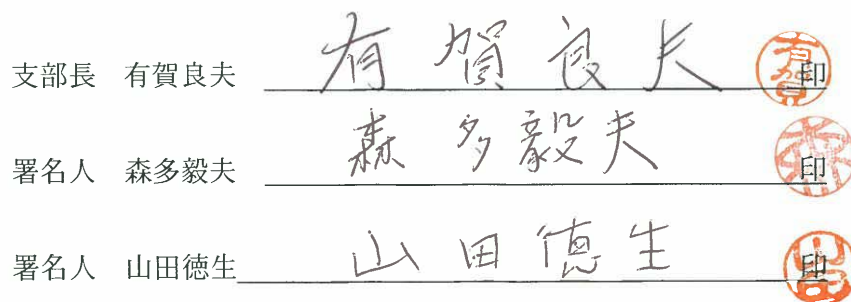 支部長 有賀良夫 有賀良夫 有賀 印
署名人 森多毅夫 森多毅夫 森 印
署名人 山田徳生 山田徳生 印